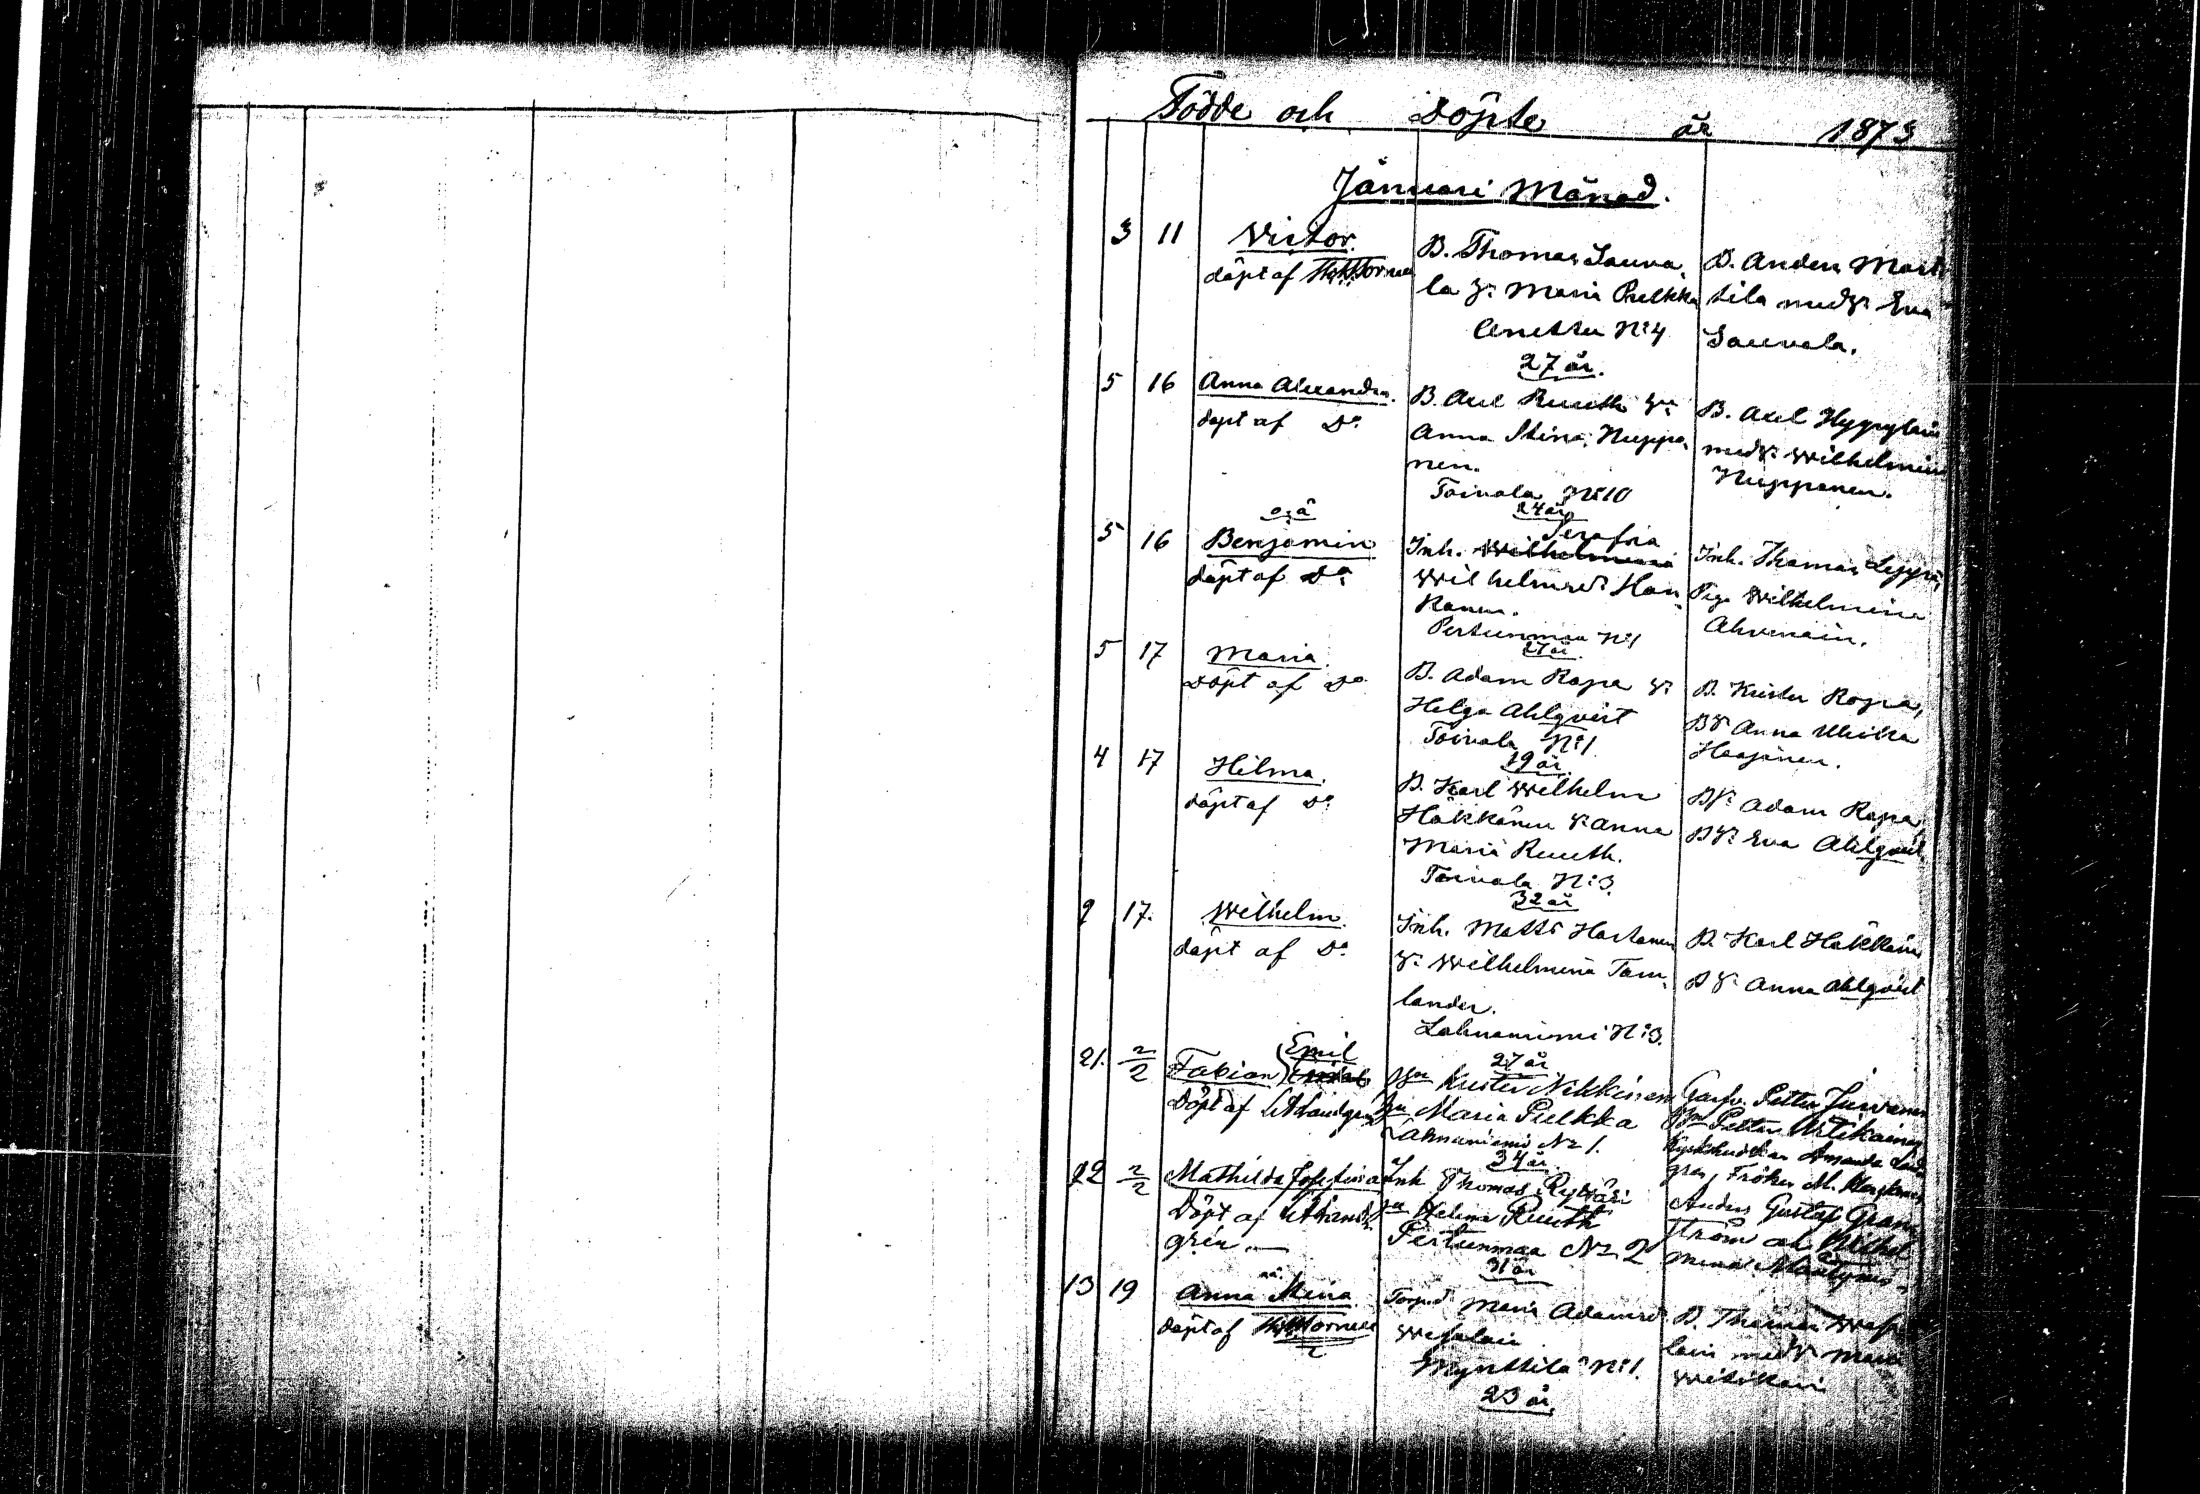 Födde och Döpte år 1873
Januari Månad.
3 11 Victor.
döpt af
B. Thomas Sauva,
la h. Maria Pulkka
Anettu N:4
27 år.
B. Anders Mart
tila med h. Eva
Sauvala.
5 16 Anna Alexandra.
döpt af Do
B. Axel Ruuth h:
Anna Stina Nuppo,
nen.
Toivola N:10
24 år
B. Axel Hyyryläin
med h. Wilhelmin
Nupponen.
5 16 o.ä
Benjamin
döpt af Do
Serafia
Inh. Wilhelmina
Wilhelmsd: Han,
kanen.
Pertunmaa N:1
27 år.
Inh. Thomas Leppä,
Pig. Wilhelmina
Ahvenain.
5 17 Maria.
Döpt af Do
B. Adam Ropa h:
Helga Ahlqvist
Toivola N:1
19 år
B. Krister Ropa,
Bh Anna Ulrika
Haajanen.
4 17 Hilma.
döpt af Do
B. Karl Wilhelm
Häkkänen h: Anna
Maria Ruuth.
Toivola N:3.
32 år
Bh: Adam Ropa,
Bh: Eva Ahlqvist
9 17. Wilhelm.
döpt af Do
Inh. Matts Hartonen
h: Wilhelmina Tam,
lander.
Lahnaniemi N:3.
27 år
B. Karl Häkkäin
Bh: Anna Ahlqvist
21. 2/2 Fabian Emil
Döpt af
Krister Nikkinen
Maria Pulkka
Lahnaniemi No 1.
34 år
Garfv. Petter
Petter
Amanda Lind
gren, Fröken M.
22 2/2 Mathilda Josefina
Döpt af
grén.
Inh Thomas
Helena Ruuth
Pertunmaa No 2
31 år
Anders Gustaf Gran
ström och Wilhel
mina
13 19 oä.
Anna Stina.
döpt af
Maria Adamsd
Wesalain
Mynttilä N:1.
23 år.
B. Thomas Wesa
lain med h. Maria